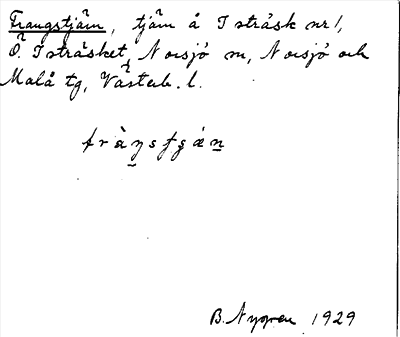 Trangstjärn, tjärn å Isträsk nr 1,
Ö. Isträsket, Norsjö sn, Norsjö och
Malå tg, Västerb. l.
B. Nygren 1929